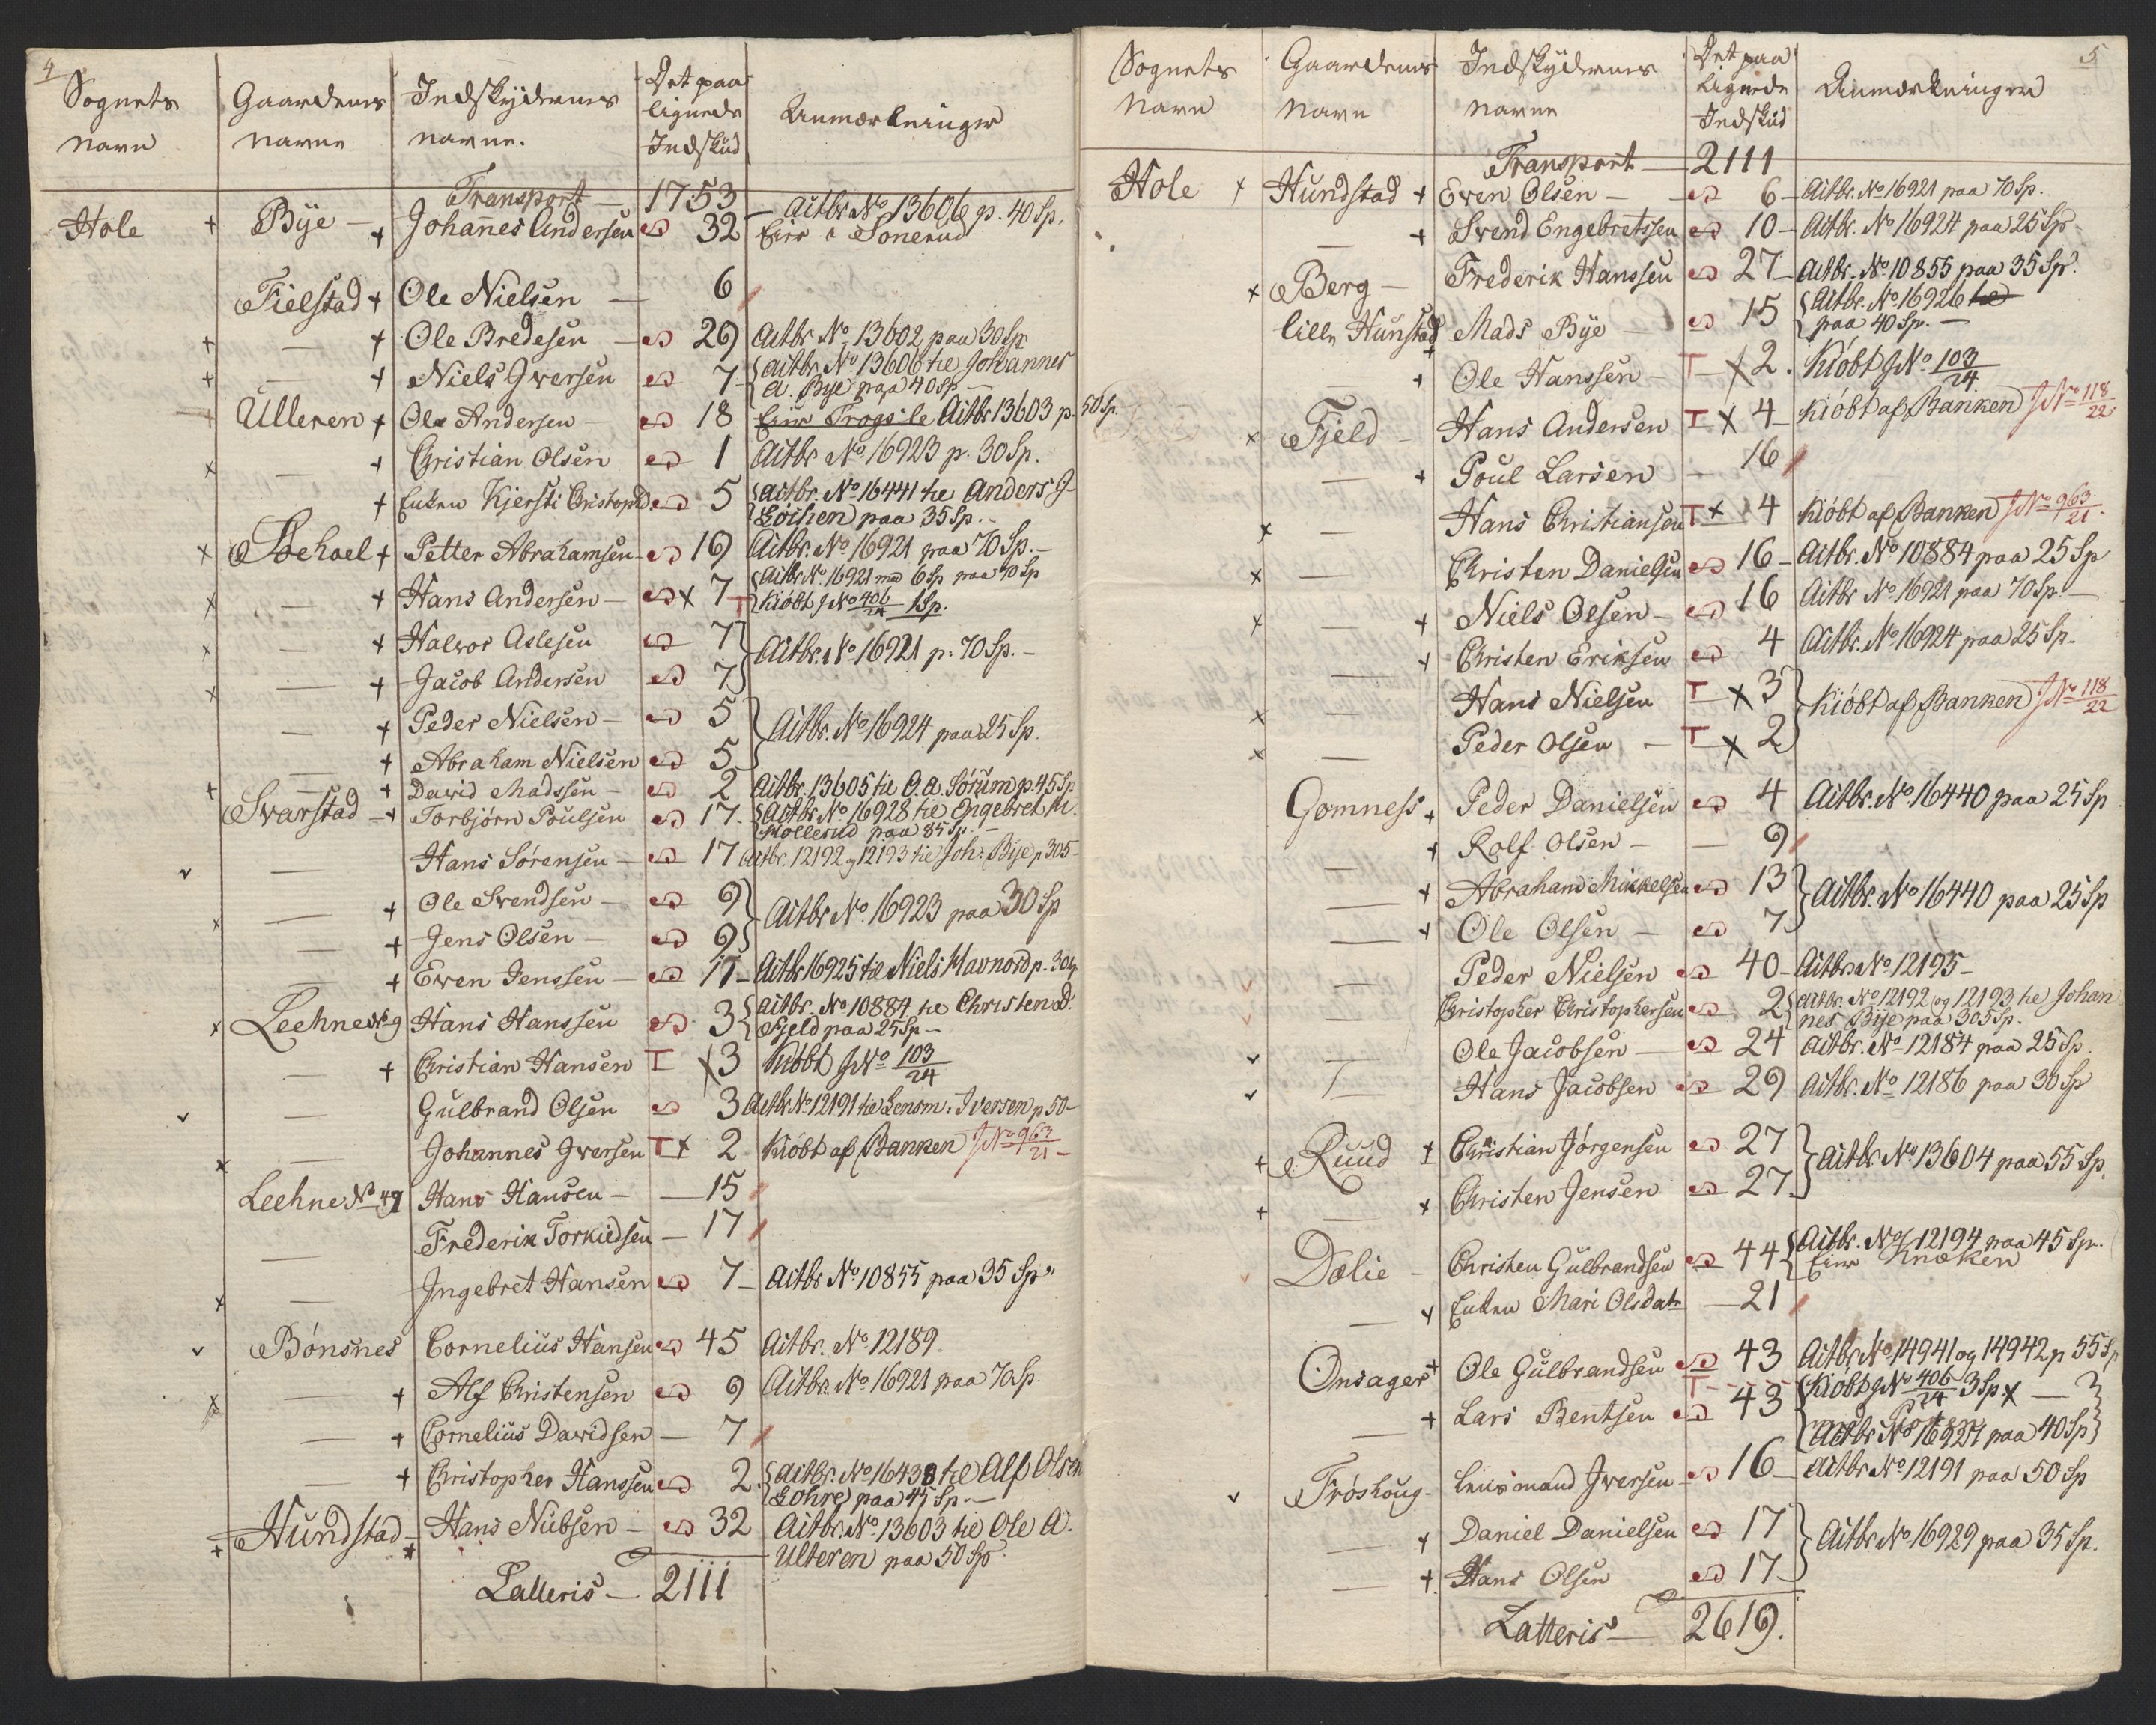 4
Sognets Navn | Gaardenes Navne | Indskydernes navne. | Det paa lignede Indskud | Anmærkninger
Transport — 1753
Hole + Bÿe — + Johannes Andersen 32 — Actbr. No 13606 p. 40 Sp.
Eier i Sonerud
Fielstad + Ole Nielsen — 6
+ — + Ole Bredesen — 29 Actbr No 13602 paa 30 Sp
+ — + Niels Iwersen 7 Actbr. No 13606 til Johannes
A. Bye paa 40 Sp —
Ulleren + Ole Andersen — 18 Actbr 13603 p. 50 Sp.
x — + Christian Olsen 1 Actbr No 16923 p. 30 Sp.
+ Enken Kjersti Christophd 5 Actbr. No 16441 til Anders G
Löchen paa 35 Sp.
x Behoel + Petter Abrahamsen 19 Actbr. No 16921 paa 70 Sp. —
x — + Hans Andersen — x 7 Actbr No 16921 med 6 Sp paa 70 Sp
T Kiöbt J No 406/24 1 Sp.
x — + Halvor Aslesen 7
Actbr. No 16921 p. 70 Sp. —
x — + Jacob Andersen 7
— + Peder Nielsen — 5
Actbr. No 16924 paa 25 Sp.
— + Abraham Nielsen 5
+ — + David Madssen — 2 Actbr. 13605 til O. A. Sörum p. 45 Sp.
Svarstad — + Torbjörn Poulsen 17 Actbr No 16928 til Engebret M.
Mollerud paa 85 Sp. —
v — Hans Sörensen — 17 Actbr. 12192 og 12193 til Joh: Bije p 305 —
— + Ole Svendsen — 9
Actbr No 16923 paa 30 Sp
x — + Jens Olsen — 9
— + Ewen Jenssen — 17 — Actbr 16925 til Niels Mavnord p. 30 Sp
x Leehne No 9 Hans Hanssen 3 Actbr. No 10884 til Christen D.
Fjeld paa 25 Sp —
— + Christian Hansen T x 3 Kiöbt J No 103/24
v — Gulbrand Olsen 3 Actbr No 12191 til Lensm: Iversen p 50 —
x — Johannes Iwersen T x 2 Kiöbt af Banken J No 963/21 —
Leehne No 49 Hans Hansen — 15
— Frederik Torkildsen — 17
x — Ingebret Hansen 7 — Actbr No 10855 paa 35 Sp
v Bönsnes Cornelius Hansen 45 Actbr. No 12189.
x — + Alf Christensen 9 Actbr. No 16921 paa 70 Sp.
— + Cornelius Davidsen — 7
— + Christopher Hanssen 2. Actbr. No 16438 til Alf Olsen
Lohre paa 45 Sp. —
+ Hundstad — + Hans Nubsen — 32 Actbr. No 13603 til Ole A.
Ulteren paa 50 Sp.
Latteris — 2111
5
Sognets Navn | Gaardenes Navn | Indskydernes navne | Det paa lignede Indskud | Anmærkninger
Transport — 2111
Hole + Hundstad + Ewen Olsen — 6 — Actbr. No 16921 paa 70 Sp.
— + Svend Engebretssen 10 — Actbr. No 16924 paa 25 Sp —
x Berg — Frederik Hanssen 27 — Actbr. No 10855 paa 35 Sp.
lille Hunstad + Mads Bÿe 15 Actbr. No 16926 til
paa 40 Sp. —
— + Ole Hanssen — T x 2. Kiöbt J No 103/24
x Fjeld — Hans Andersen T x 4 — Kiöbt af Banken J No 118/22
— + Poul Larsen — 16
x — Hans Christiansen T x 4 Kiöbt af Banken J No 963/21.
x — Christen Danielsen 16 — Actbr. No 10884 paa 25 Sp
x — + Niels Olsen — 16 Actbr No 16921 paa 70 Sp. —
— + Christen Eriksen 4 Actbr. No 16924 paa 25 Sp.
x — Hans Nielsen T x 3
Kiöbt af Banken J No 118/22
x — Peder Olsen — T x 2
Gomness + Peder Danielsen 4 Actbr. No 16440 paa 25 Sp
— + Rolf Olsen — 9
— + Abraham Mikkelsen 13
Actbr. No 16440 paa 25 Sp
— + Ole Olsen — 7
v — Peder Nielsen 40 — Actbr No 12195 —
v — Christopher Christophersen 2 Actbr. No 12192 og 12193 til Johan
nes Bije paa 305 Sp.
v — Ole Jacobsen — 24 Actbr. No 12184 paa 25 Sp.
v — Hans Jacobsen 29 Actbr. No 12186 paa 30 Sp
+ Ruud + Christian Jörgensen 27
Actbr. No 13604 paa 55 Sp.
+ — + Christen Jensen 27
v Dælie — Christen Gulbrandsen 44 Actbr. No 12194 paa 45 Sp.
Eier Knæken
— + Enken Mari Olsdatr — 21
Onsager + Ole Gulbrandsen 43 Actbr No 14941 og 14942 p 55 Sp
— + Lars Bentsen T 43 Kiöbt J No 406/24 3 Sp x —
Actbr No 16927 paa 40 Sp
v Fröshoug — Lensmand Iwersen — 16 — Actbr No 12191 paa 50 Sp
— + Daniel Danielsen 17
Actbr No 16929 paa 35 Sp.
— + Hans Olsen 17
Latteris — 2619.